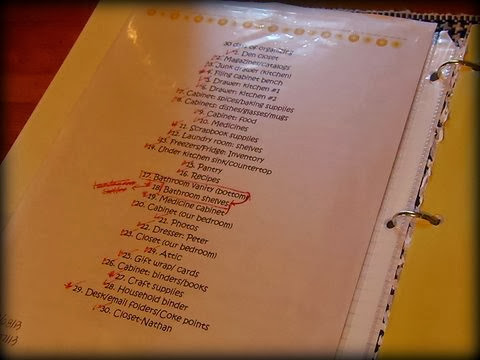 30 days of organizing
1. Den closet
2. Magazines/catalogs
3. Junk drawer (kitchen)
4. Filing cabinet bench
5. Drawer: kitchen #1
6. Drawer: kitchen #2
7. Cabinet: spices/baking supplies
8. Cabinets: dishes/glasses/mugs
9. Cabinet: food
10. Medicines
11. Scrapbook supplies
12. Laundry room: shelves
13. Freezers/Fridge: Inventory
14. Under kitchen sink/countertop
15. Pantry
16. Recipes
17. Bathroom Vanity (bottom)
18. Bathroom shelves
19. Medicine Cabinet
20. Cabinet (our bedroom)
21. Photos
22. Dresser: Peter
23. Closet (our bedroom)
24. Attic
25. Gift wrap/ cards
26. Cabinet: binders/books
27. Craft supplies
28. Household binder
29. Desk/email folders/Coke points
30. Closet-Nathan